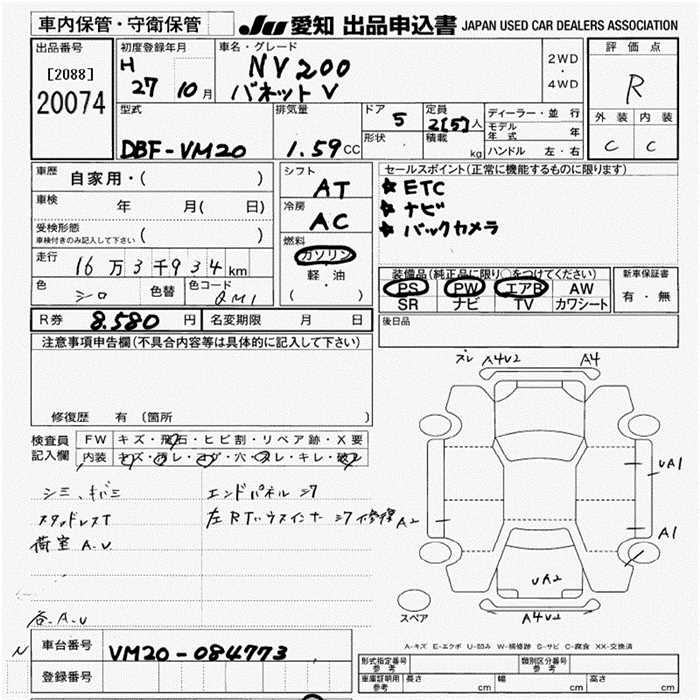 車内保管・守衛保管 JU 愛知 出品申込書 JAPAN USED CAR DEALERS ASSOCIATION
出品番号
[2088]
20074
初度登録年月
H
27 10月
車名・グレード
NV200
バネットV
2WD
・
4WD
評価点
R
外装 内装
C C
型式
DBF-VM20
排気量
1.59cc
ドア
5
形状
定員
2[5]人
積載
kg
ディーラー・並行
モデル年式 年
ハンドル 左・右
車歴 自家用・( )
車検 年 月( 日)
受検形態
車検付きのみ記入して下さい ( )
走行 16万3千934km
色 シロ 色替 色コード QM1
シフト
AT
冷房
AC
燃料
ガソリン
軽・油
( )
セールスポイント(正常に機能するものに限ります)
★ETC
★ナビ
★バックカメラ
装備品(純正品に限り○をつけてください)
PS PW エアB AW
SR ナビ TV カワシート
新車保証書
有・無
後日品
R券 8.580円 名変期限 月 日
注意事項申告欄(不具合内容等は具体的に記入して下さい)
修復歴 有 (箇所
検査員記入欄
FW キズ・飛石・ヒビ割・リペア跡・X要
内装 キズ・汚レ・コゲ・穴・スレ・キレ・破レ
シミ、キバミ
スタッドレスT
荷室 A.U
各A.U
エンドパネル シワ
左RTハウスインナー シワ 修復
ズレ A4V2 A4
UA1
A2
A1
UA2
A4V2
スペア
A-キズ E-エクボ U-凹み W-補修跡 S-サビ C-腐食 XX-交換済
車台番号 VM20-084773
登録番号
型式指定番号 参考 類別区分番号 参考
車庫証明用 参考 長さ cm 幅 cm 高さ cm